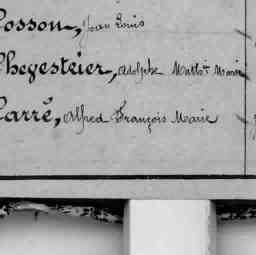 Cosson, Jean Louis
Chegesteier, Adolphe Math.n Marie
Carré, Alfred François Marie